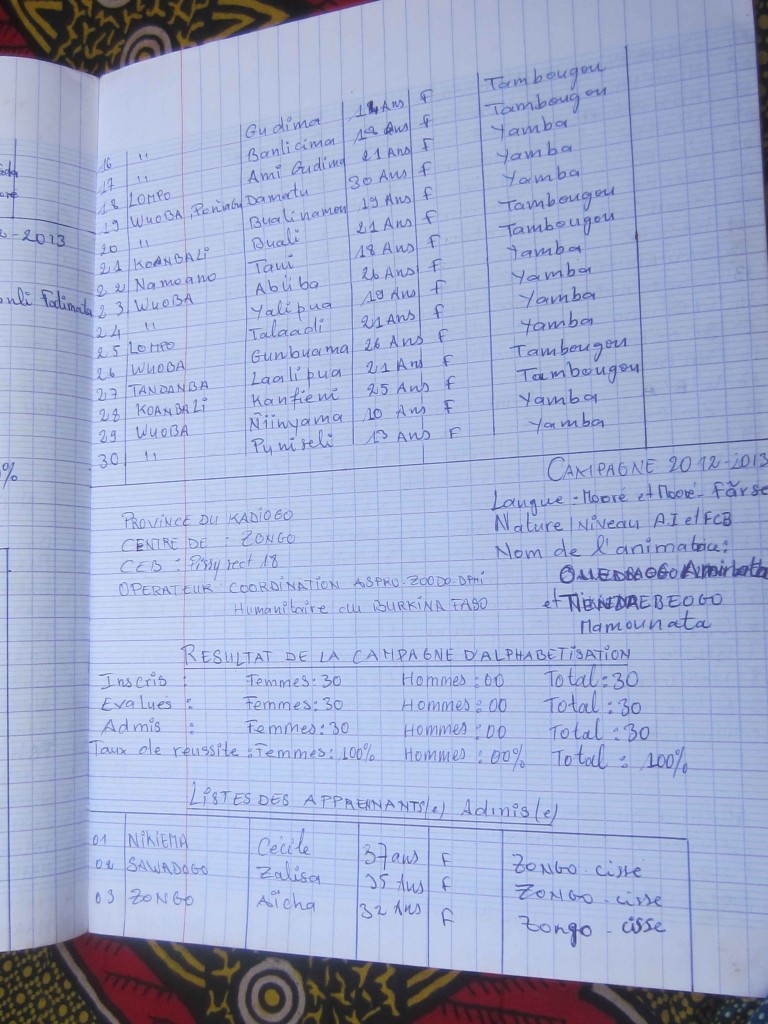 2-2013
16 '' Gudima Ans F Tambougou
17 '' Banlicima 19 Ans F Tambougou
18 LOMPO Ami Gudima 21 Ans F Yamba
19 WUOBA Damatu 30 Ans F Yamba
20 '' Bualinamon 19 Ans F Yamba
21 KOANBALI Buali 21 Ans F Tambougou
22 Namoano Tani 18 Ans F Tambougou
23 WUOBA Abiiba 26 Ans F Yamba
24 '' Yalipua 19 Ans F Yamba
25 LOMPO Talaadi 21 Ans F Yamba
26 WUOBA Gunbuama 26 Ans F Yamba
27 TANDANBA Laalipua 21 Ans F Tambougou
28 KOANBALI Kanfieni 25 Ans F Tambougou
29 WUOBA Ñiinyama 10 Ans F Yamba
30 '' Puniseli 13 Ans F Yamba
%
CAMPAGNE 2012-2013
PROVINCE DU KADIOGO Langue : Mooré et Mooré-Fãrse
CENTRE DE : ZONGO Nature / Niveau A.I et FCB
CEB : Pissy sect 18 Nom de l'animatrice :
OPERATEUR : COORDINATION ASPRO-ZOODO-DPMI OUEDRAOGO Aminata
Humanitaire du BURKINA FASO et
Mamounata
RESULTAT DE LA CAMPAGNE D'ALPHABETISATION
Inscris : Femmes : 30 Hommes : 00 Total : 30
Evalues : Femmes : 30 Hommes : 00 Total : 30
Admis : Femmes : 30 Hommes : 00 Total : 30
Taux de réussite : Femmes : 100% Hommes : 00% Total : 100%
LISTES DES APPRENNANTS(e) Admis(e)
01 NIKIEMA Cécile 37 ans F ZONGO - cisse
02 SAWADOGO Zalisa 35 Ans F ZONGO - cisse
03 ZONGO Aïcha 32 Ans F Zongo - cisse